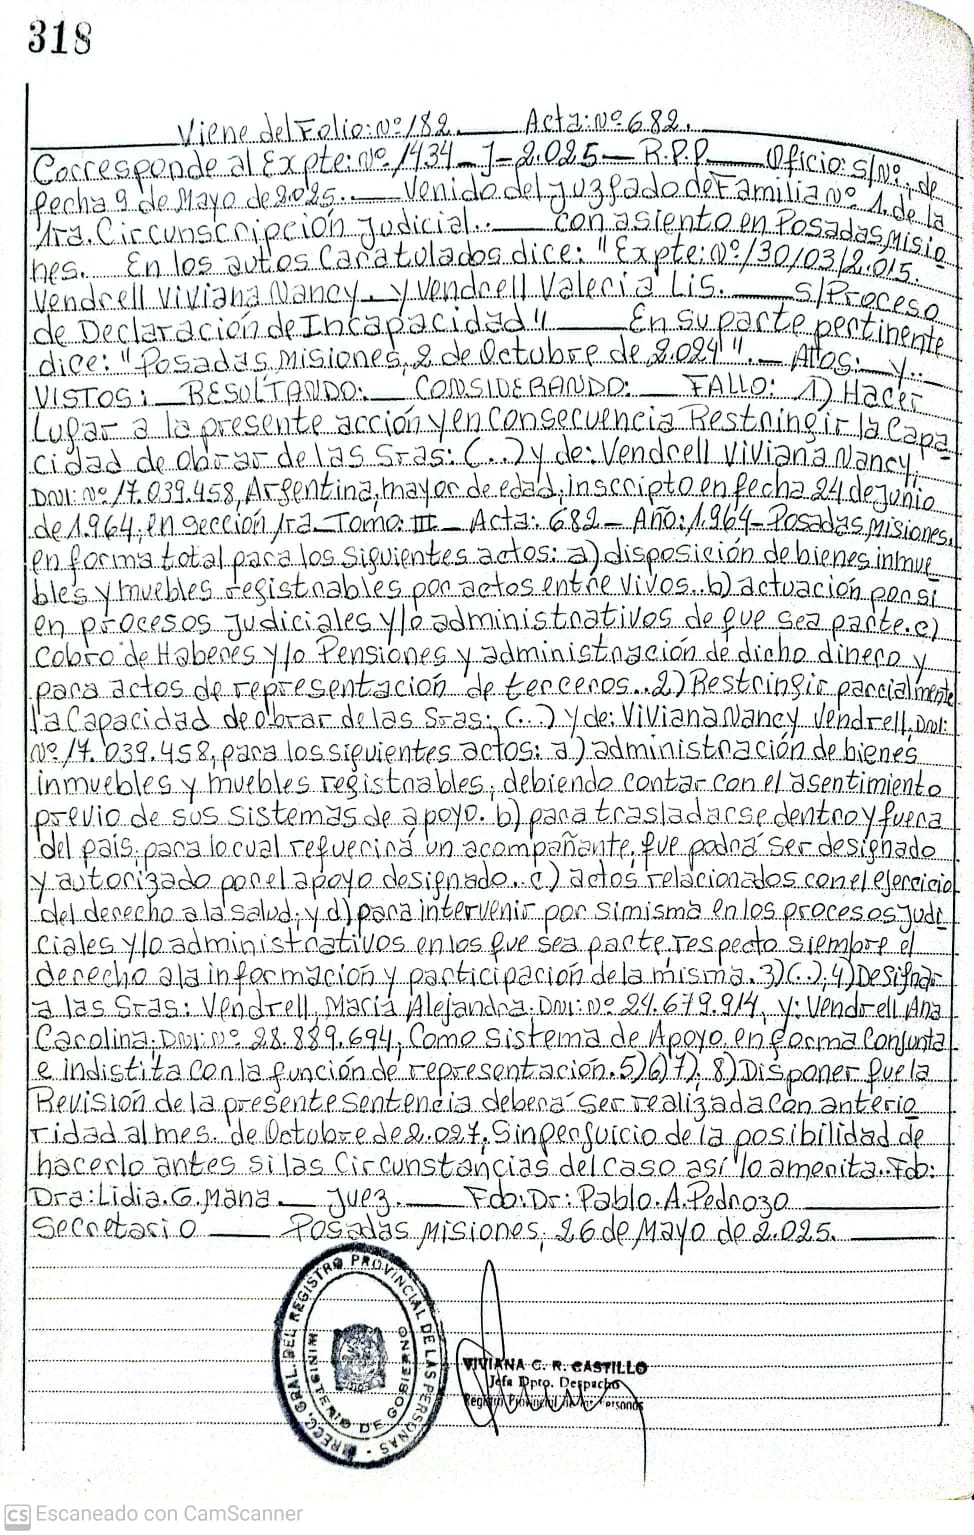 318
Viene del Folio: Nº 182. Acta: Nº 682.
Corresponde al Expte: Nº 1434 - J - 2.025 — R.P.P. — Oficio: s/Nº, de
fecha 9 de Mayo de 2025. — Venido del Juzgado de Familia Nº 1. de la
1ra. Circunscripción Judicial. — con asiento en Posadas, Misio
nes. En los autos Caratulados dice: "Expte: Nº 130103/2.015.
Vendrell Viviana Nancy. y Vendrell Valeria Lis. — s/Proceso
de Declaración de Incapacidad" — En su parte pertinente
dice: "Posadas, Misiones, 2 de Octubre de 2.024". — Atos: y. —
VISTOS: — RESULTANDO: — CONSIDERANDO: — FALLO: 1) Hacer
Lugar a la presente acción y en consecuencia Restringir la Capa
cidad de obrar de las Sras: (...) y de: Vendrell Viviana Nancy,
DNI: Nº 17.039.458, Argentina, mayor de edad, inscripto en fecha 24 de Junio
de 1.964, en Sección 1ra — Tomo: III — Acta: 682 — Año: 1.964 — Posadas, Misiones,
en forma total para los siguientes actos: a) disposición de bienes inmue
bles y muebles registrables por actos entre vivos.. b) actuación por si
en procesos judiciales y/o administrativos de que sea parte. c)
Cobro de Haberes y/o Pensiones y administración de dicho dinero y
para actos de representación de terceros.. 2) Restringir parcialmente
la Capacidad de obrar de las Sras: (...) y de: Viviana Nancy Vendrell, DNI:
Nº 17.039.458, para los siguientes actos: a) administración de bienes
inmuebles y muebles registrables, debiendo contar con el asentimiento
previo de sus sistemas de apoyo. b) para trasladarse dentro y fuera
del país, para lo cual requerirá un acompañante, que podrá ser designado
y autorizado por el apoyo designado.. c) actos relacionados con el ejercicio
del derecho a la salud; y d) para intervenir por si misma en los procesos judi
ciales y/o administrativos en los que sea parte, respecto siempre el
derecho a la información y participación de la misma. 3) (...), 4) Designar
a las Sras: Vendrell, María Alejandra. DNI: Nº 24.679.914, y: Vendrell Ana
Carolina. DNI: Nº 28.889.694, Como sistema de Apoyo en forma Conjunta
e indistita con la función de representación. 5) 6) 7). 8) Disponer que la
Revisión de la presente sentencia deberá ser realizada con anterio
ridad al mes. de Octubre de 2.027, Sin perjuicio de la posibilidad de
hacerlo antes si las Circunstancias del caso así lo amerita.. Fdo:
Dra: Lidia. G. Mana. — Juez. — Fdo: Dr: Pablo. A. Pedrozo
Secretario — Posadas, Misiones, 26 de Mayo de 2.025.
DIRECC. GRAL. DEL REGISTRO PROVINCIAL DE LAS PERSONAS
MINISTERIO DE GOBIERNO
VIVIANA G. R. CASTILLO
Jefa Dpto. Despacho
Registro Provincial de las Personas
CS Escaneado con CamScanner